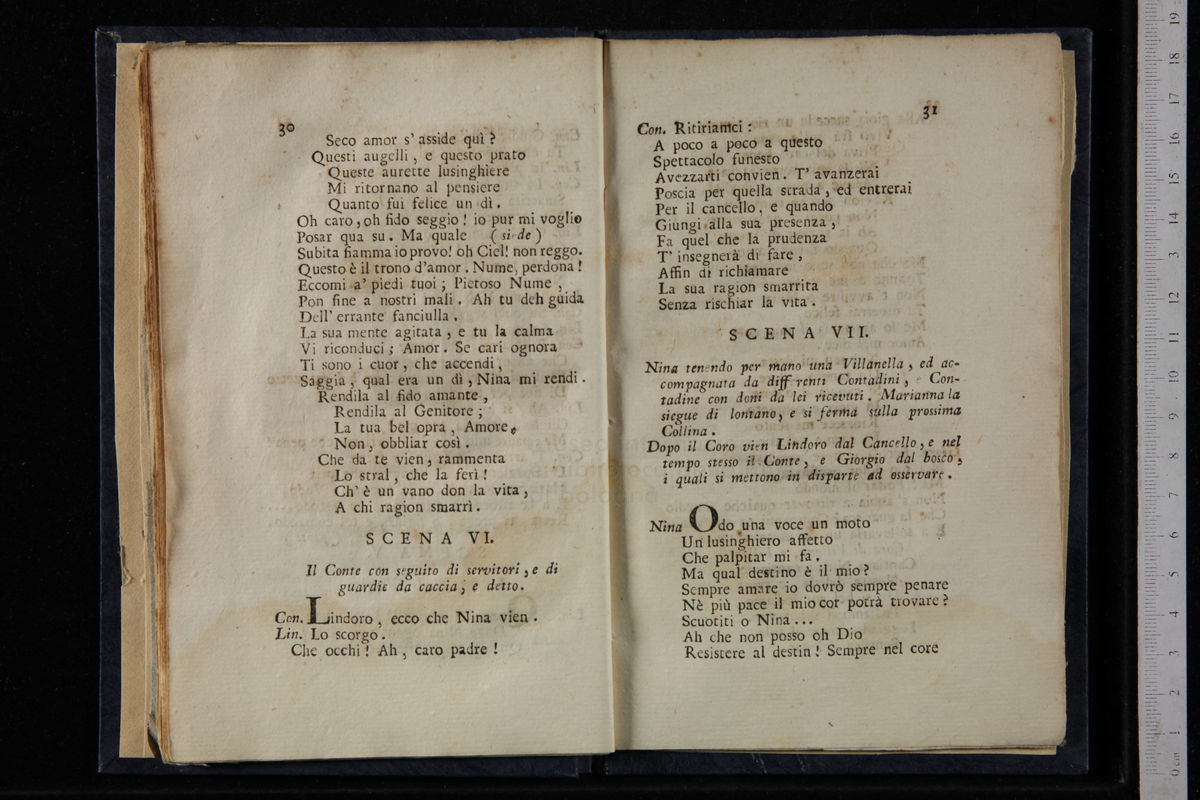 30
Seco amor s' asside quì ?
Questi augelli , e questo prato
Queste aurette lusinghiere
Mi ritornano al pensiere
Quanto fui felice un dì .
Oh caro , oh fido seggio ! io pur mi voglio
Posar qua su . Ma quale ( si-de )
Subita fiamma io provo ! oh Ciel ! non reggo.
Questo è il trono d'amor . Nume, perdona !
Eccomi a' piedi tuoi ; Pietoso Nume ,
Pon fine a nostri mali . Ah tu deh guida
Dell' errante fanciulla .
La sua mente agitata , e tu la calma
Vi riconduci ; Amor . Se cari ognora
Ti sono i cuor , che accendi ,
Saggia , qual era un dì , Nina mi rendi .
Rendila al fido amante ,
Rendila al Genitore ;
La tua bel opra , Amore ,
Non , obbliar così .
Che da te vien , rammenta
Lo stral , che la ferì !
Ch' è un vano don la vita ,
A chi ragion smarrì .
SCENA VI.
Il Conte con seguito di servitori , e di
guardie da caccia , e detto .
Con. Lindoro , ecco che Nina vien .
Lin. Lo scorgo .
Che occhi ! Ah , caro padre !
31
Con. Ritiriamci :
A poco a poco a questo
Spettacolo funesto
Avezzarti convien . T' avanzerai
Poscia per quella strada , ed entrerai
Per il cancello , e quando
Giungi alla sua presenza ,
Fa quel che la prudenza
T' insegnerà di fare ,
Affin di richiamare
La sua ragion smarrita
Senza rischiar la vita .
SCENA VII.
Nina tenendo per mano una Villanella , ed ac-
compagnata da diff renti Contadini , e Con-
tadine con doni da lei ricevuti . Marianna la
siegue di lontano , e si ferma sulla prossima
Collina .
Dopo il Coro vien Lindoro dal Cancello , e nel
tempo stesso il Conte , e Giorgio dal bosco ,
i quali si mettono in disparte ad osservare .
Nina Odo una voce un moto
Un lusinghiero affetto
Che palpitar mi fa .
Ma qual destino è il mio ?
Sempre amare io dovrò sempre penare
Nè più pace il mio cor potrà trovare ?
Scuotiti o Nina ...
Ah che non posso oh Dio
Resistere al destin ! Sempre nel core
0 cm 1 2 3 4 5 6 7 8 9 10 11 12 13 14 15 16 17 18 19